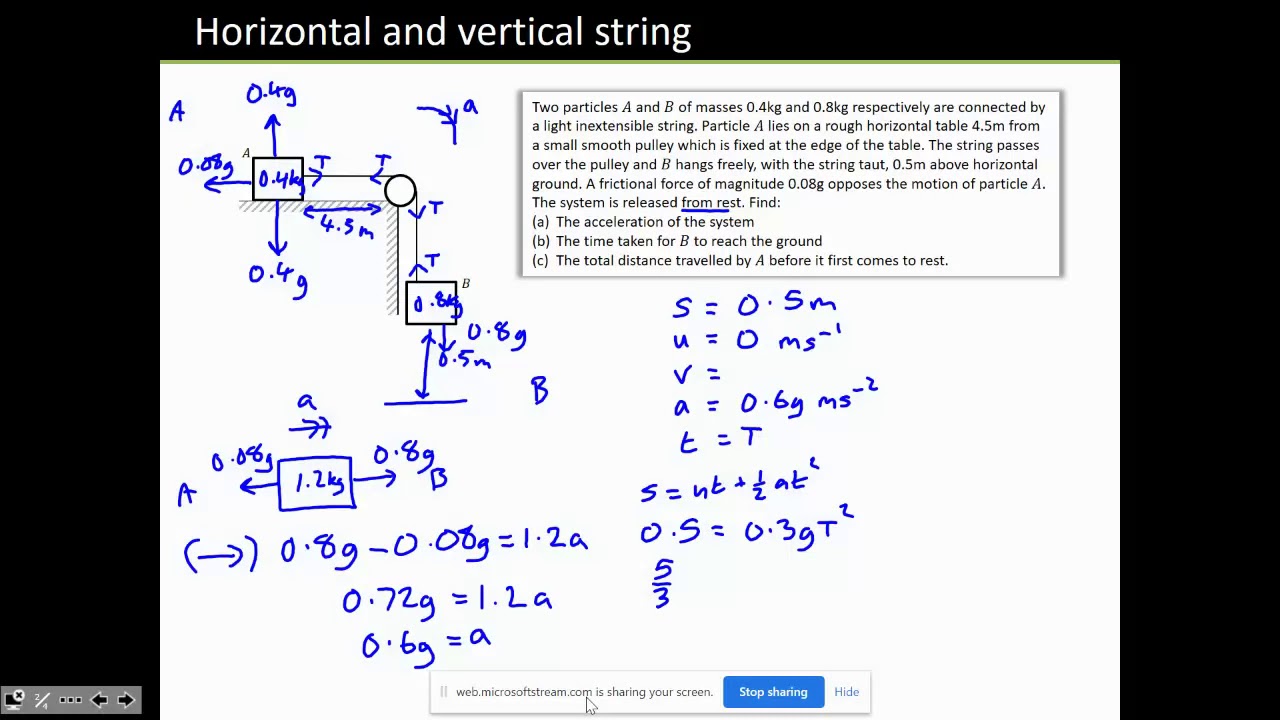 Horizontal and vertical string
Two particles A and B of masses 0.4kg and 0.8kg respectively are connected by
a light inextensible string. Particle A lies on a rough horizontal table 4.5m from
a small smooth pulley which is fixed at the edge of the table. The string passes
over the pulley and B hangs freely, with the string taut, 0.5m above horizontal
ground. A frictional force of magnitude 0.08g opposes the motion of particle A.
The system is released from rest. Find:
(a) The acceleration of the system
(b) The time taken for B to reach the ground
(c) The total distance travelled by A before it first comes to rest.
A
0.4g
a
A
0.08g
0.4kg
T
T
4.5m
T
0.4g
T
B
0.8kg
0.8g
0.5m
B
a
0.08g
0.8g
A
1.2kg
B
(→) 0.8g - 0.08g = 1.2a
0.72g = 1.2a
0.6g = a
s = 0.5m
u = 0 ms⁻¹
v =
a = 0.6g ms⁻²
t = T
s = ut + ½ at²
0.5 = 0.3gT²
5/3
2/4
web.microsoftstream.com is sharing your screen.
Stop sharing
Hide